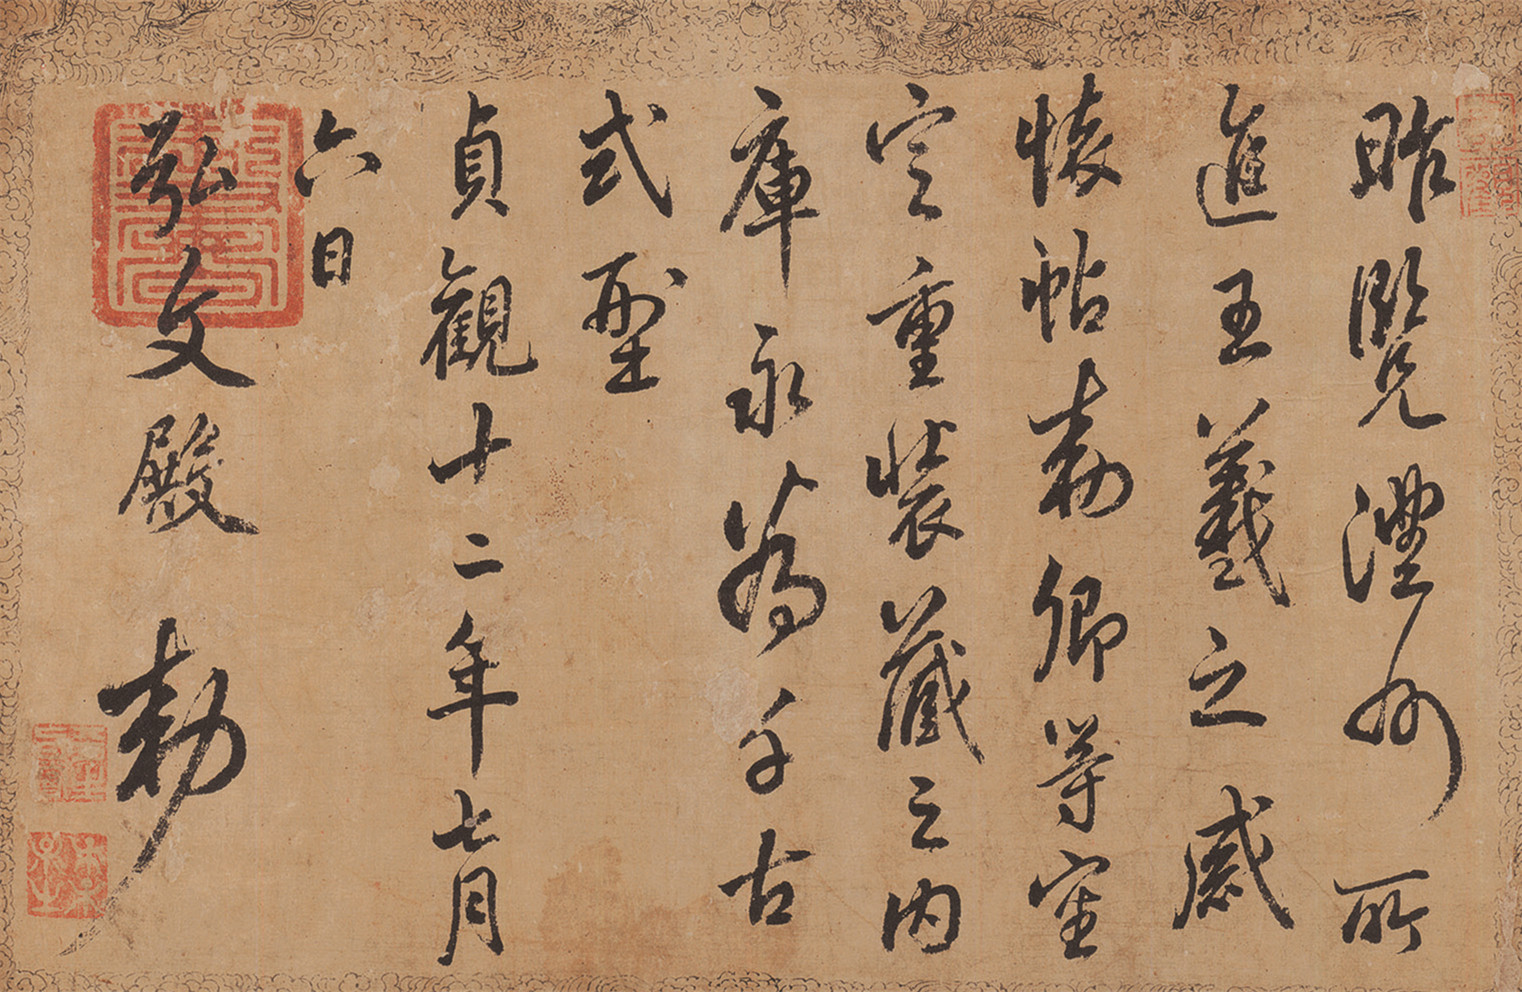 昨覽澧州所
進王羲之感
懷帖勅卿等審
定重裝藏之內
庫永為千古
式型
貞觀十二年七月
六日
弘文殿 勅